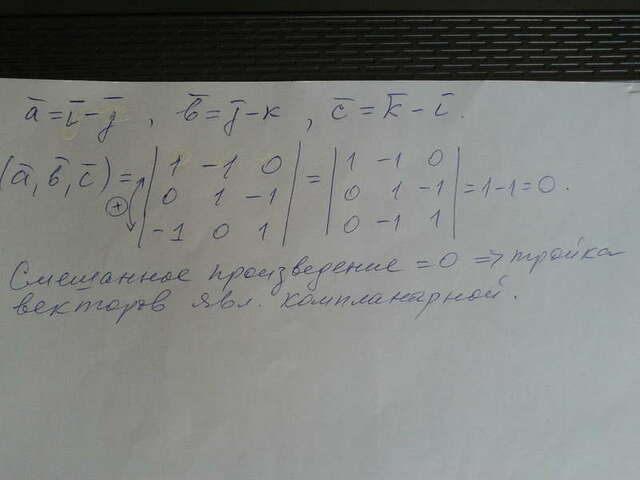 a̅ = i̅ - j̅ , b̅ = j̅ - k , c̅ = k̅ - i̅.
(a̅, b̅, c̅) = | 1 -1 0 | = | 1 -1 0 | = 1 - 1 = 0.
⊕ | 0 1 -1 | | 0 1 -1 |
| -1 0 1 | | 0 -1 1 |
Смешанное произведение = 0 => тройка
векторов явл. компланарной.